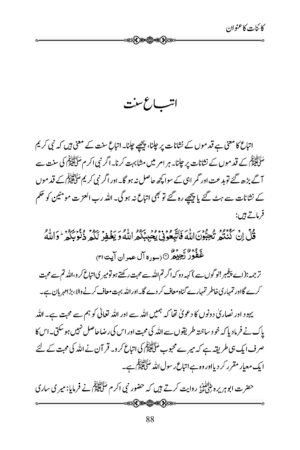 کائنات کا عنوان
اتباع سنت
اتباع کا معنی ہے قدموں کے نشانات پر چلنا، پیچھے چلنا۔ اتباع سنت کے معنی ہیں کہ نبی کریم
ﷺ کے قدموں کے نشانات پر چلنا۔ ہر امر میں مشابہت کرنا۔ اگر نبی اکرم ﷺ کی سنت سے
آگے بڑھ گئے تو بدعت اور گمراہی کے سوا کچھ حاصل نہ ہوگا۔ اور اگر نبی کریم ﷺ کے قدموں
کے نشانات سے ہٹ گئے یا پیچھے رہ گئے تو بھی اتباع نہ ہوگی۔ اللہ رب العزت مومنین کو حکم
فرماتے ہیں:
قُلْ اِنْ كُنْتُمْ تُحِبُّوْنَ اللهَ فَاتَّبِعُوْنِیْ يُحْبِبْكُمُ اللهُ وَ يَغْفِرْ لَكُمْ ذُنُوْبَكُمْ ۔ وَاللهُ
غَفُوْرٌ رَّحِیْمٌ ○ (سورہ آل عمران آیت ۳۱)
ترجمہ: (اے پیغمبر! لوگوں سے) کہہ دو کہ اگر تم اللہ سے محبت رکھتے ہو تو میری اتباع کرو، اللہ تم سے محبت
کرے گا اور تمہاری خاطر تمہارے گناہ معاف کر دے گا۔ اور اللہ بہت معاف کرنے والا، بڑا مہربان ہے۔
یہود اور نصاریٰ دونوں کا دعویٰ تھا کہ ہمیں اللہ سے اور اللہ تعالیٰ کو ہم سے محبت ہے۔ اللہ
پاک نے فرما دیا کہ خود ساختہ طریقوں سے اللہ کی محبت اور اس کی رضا حاصل نہیں ہو سکتی۔ اس کا
صرف ایک ہی طریقہ ہے کہ میرے محبوب ﷺ کی اتباع کرو۔ قرآن نے اللہ کی محبت کے لئے
ایک معیار مقرر کر دیا اور وہ ہے اتباع رسول اللہ ﷺ ہے۔
حضرت ابوہریرہ رضی اللہ عنہ روایت کرتے ہیں کہ حضور نبی اکرم ﷺ نے فرمایا: میری ساری
88